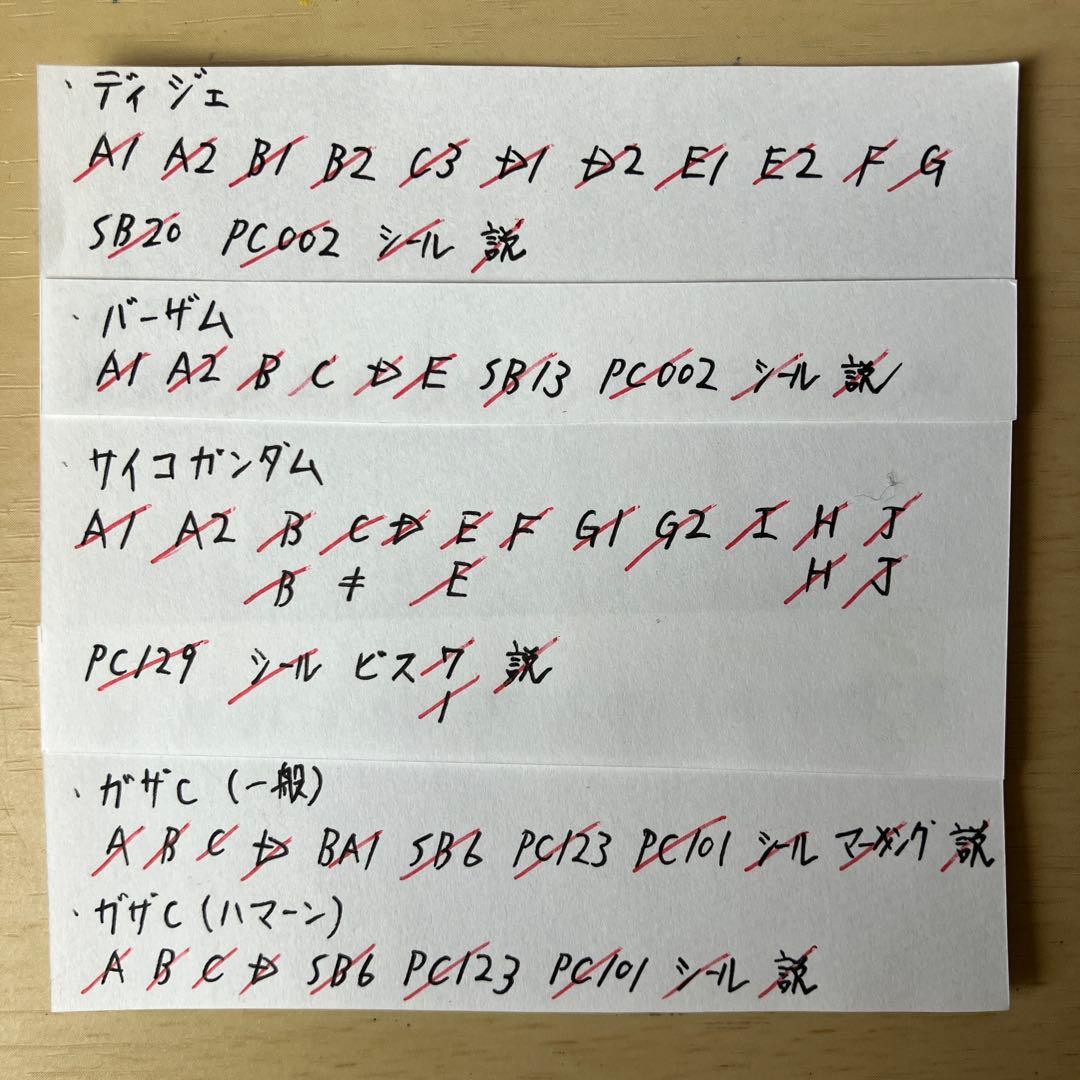 ・ディジェ
A1 A2 B1 B2 C3 D1 D2 E1 E2 F G
SB20 PC002 シール 説
・バーザム
A1 A2 B C D E SB13 PC002 シール 説
・サイコガンダム
A1 A2 B C D E F G1 G2 I H J
B キ E H J
PC129 シール ビス 7 説
1
・ガザC (一般)
A B C D BA1 SB6 PC123 PC101 シール マーキング 説
・ガザC (ハマーン)
A B C D SB6 PC123 PC101 シール 説